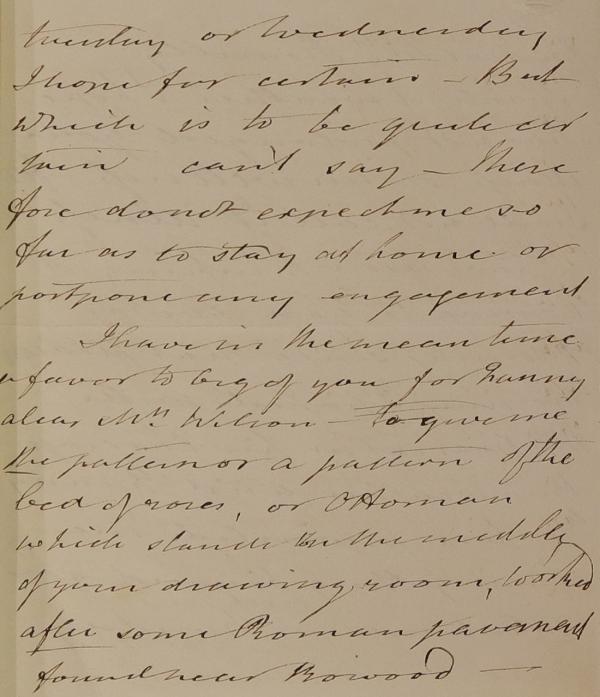 tuesday or Wednesday
I hope for certain – But
which is to be quite cer
tain can't say – there
fore do not expect me so
far as to stay at home or
postpone any engagement
I have in the mean time
a favor to beg of you for Fanny
dear Mrs Wilson – To give me
the pattern or a pattern of the
bed of roses, or Ottoman
which stands in the middle
of your drawing room, worked
after some Roman pavement
found near Bowood –